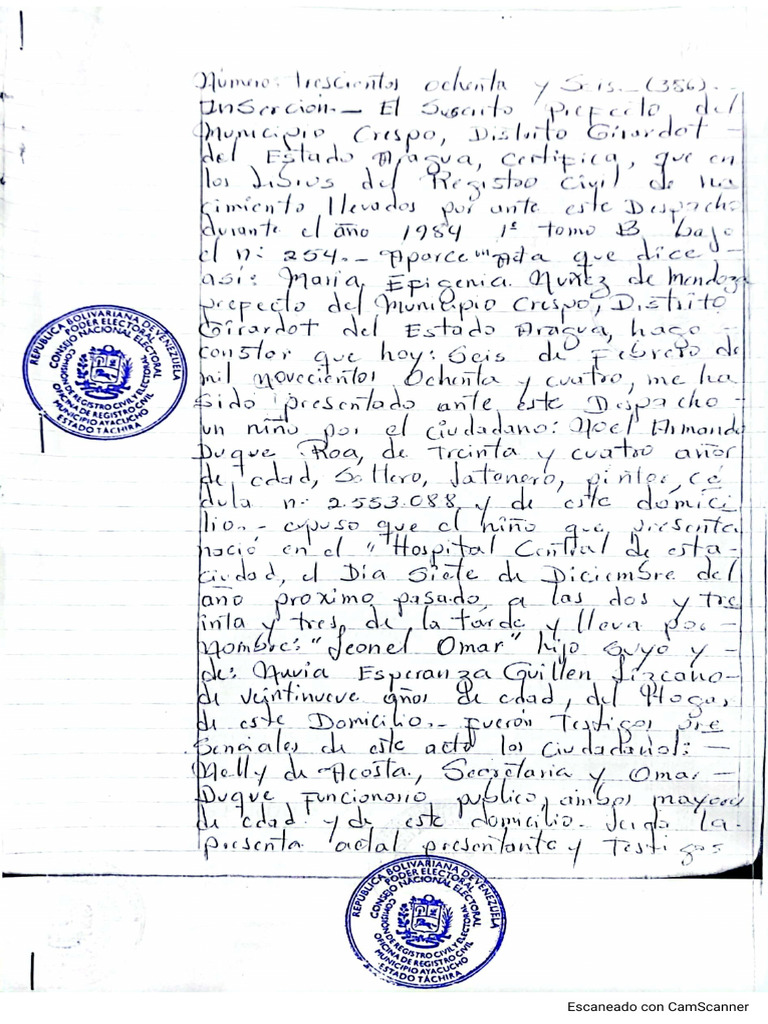 Número: Trescientos Ochenta y Seis.- (386).-
Inserción.- El Suscrito prefecto del
Municipio Crespo, Distrito Girardot -
del Estado Aragua, certifica, que en
los Libros del Registro Civil de na
cimiento llevados por ante este Despacho
durante el año 1984 1º tomo B bajo
el nº 254.- Aparce un Acta que dice -
así: Maria Epigenia Nuñez de Mendoza
prefecto del Municipio Crespo, Distrito
Girardot del Estado Aragua, hago -
constar que hoy: Seis de Febrero de
mil novecientos Ochenta y cuatro, me ha
sido presentado ante este Despacho -
un niño por el ciudadano: Noel Armando
Duque Roa, de Treinta y cuatro años
de edad, Soltero, Latonero, pintor, cé
dula nº 2.553.088 y de este domici
lio.- expuso que el niño que presenta
nació en el "Hospital Central de esta -
ciudad, el Dia Siete de Diciembre del
año proximo pasado, a las dos y tre
inta y tres, de la tarde y lleva por -
Nombre: "Leonel Omar" hijo suyo y -
de: Nuvia Esperanza Guillen Lizcano -
de veintinueve años de edad, del Hogar
de este Domicilio.- Fuerón Testigos pre
senciales de este acto los Ciudadanos: -
Nelly de Acosta, Secretaria y Omar -
Duque Funcionario publico, ambos mayores
de edad y de este domicilio.- Leida la
presenta acta presentante y Testigos
REPÚBLICA BOLIVARIANA DE VENEZUELA
PODER ELECTORAL
CONSEJO NACIONAL ELECTORAL
COMISION DE REGISTRO CIVIL Y ELECTORAL
OFICINA DE REGISTRO CIVIL
MUNICIPIO AYACUCHO
ESTADO TÁCHIRA
REPÚBLICA BOLIVARIANA DE VENEZUELA
PODER ELECTORAL
CONSEJO NACIONAL ELECTORAL
COMISION DE REGISTRO CIVIL Y ELECTORAL
OFICINA DE REGISTRO CIVIL
MUNICIPIO AYACUCHO
ESTADO TÁCHIRA
Escaneado con CamScanner